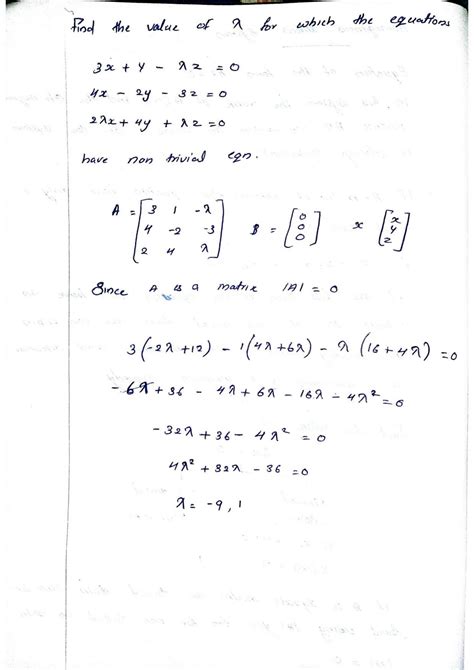 Find the value of λ for which the equations
3x + y - λz = 0
4x - 2y - 3z = 0
2λx + 4y + λz = 0
have non trivial eqn.
A = [3 1 -λ
4 -2 -3
2 4 λ] B = [0
0
0] x [x
y
z]
Since A is a matrix |A| = 0
3(-2λ+12) - 1(4λ+6λ) - λ(16+4λ) = 0
-6λ + 36 - 4λ + 6λ - 16λ - 4λ² = 0
-32λ + 36 - 4λ² = 0
4λ² + 32λ - 36 = 0
λ = -9, 1